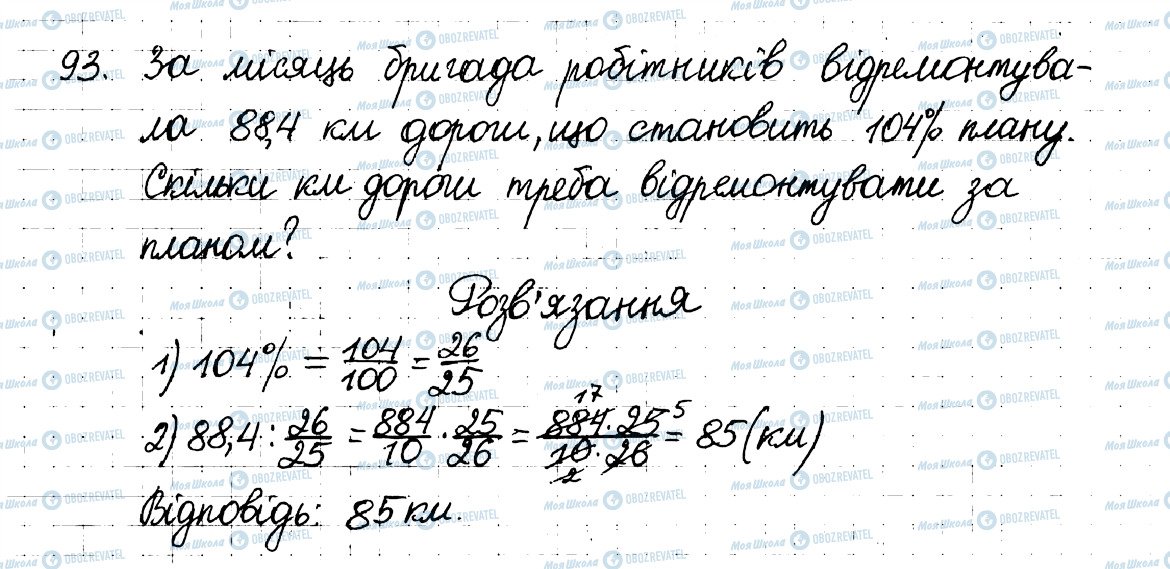 93. За місяць бригада робітників відремонтува-
ла 88,4 км дороги, що становить 104% плану.
Скільки км дороги треба відремонтувати за
планом?
Розв'язання
1) 104% = 104/100 = 26/25
2) 88,4 : 26/25 = 884/10 · 25/26 = 884 17 · 25 5 / 10 2 · 26 = 85 (км)
Відповідь: 85 км.